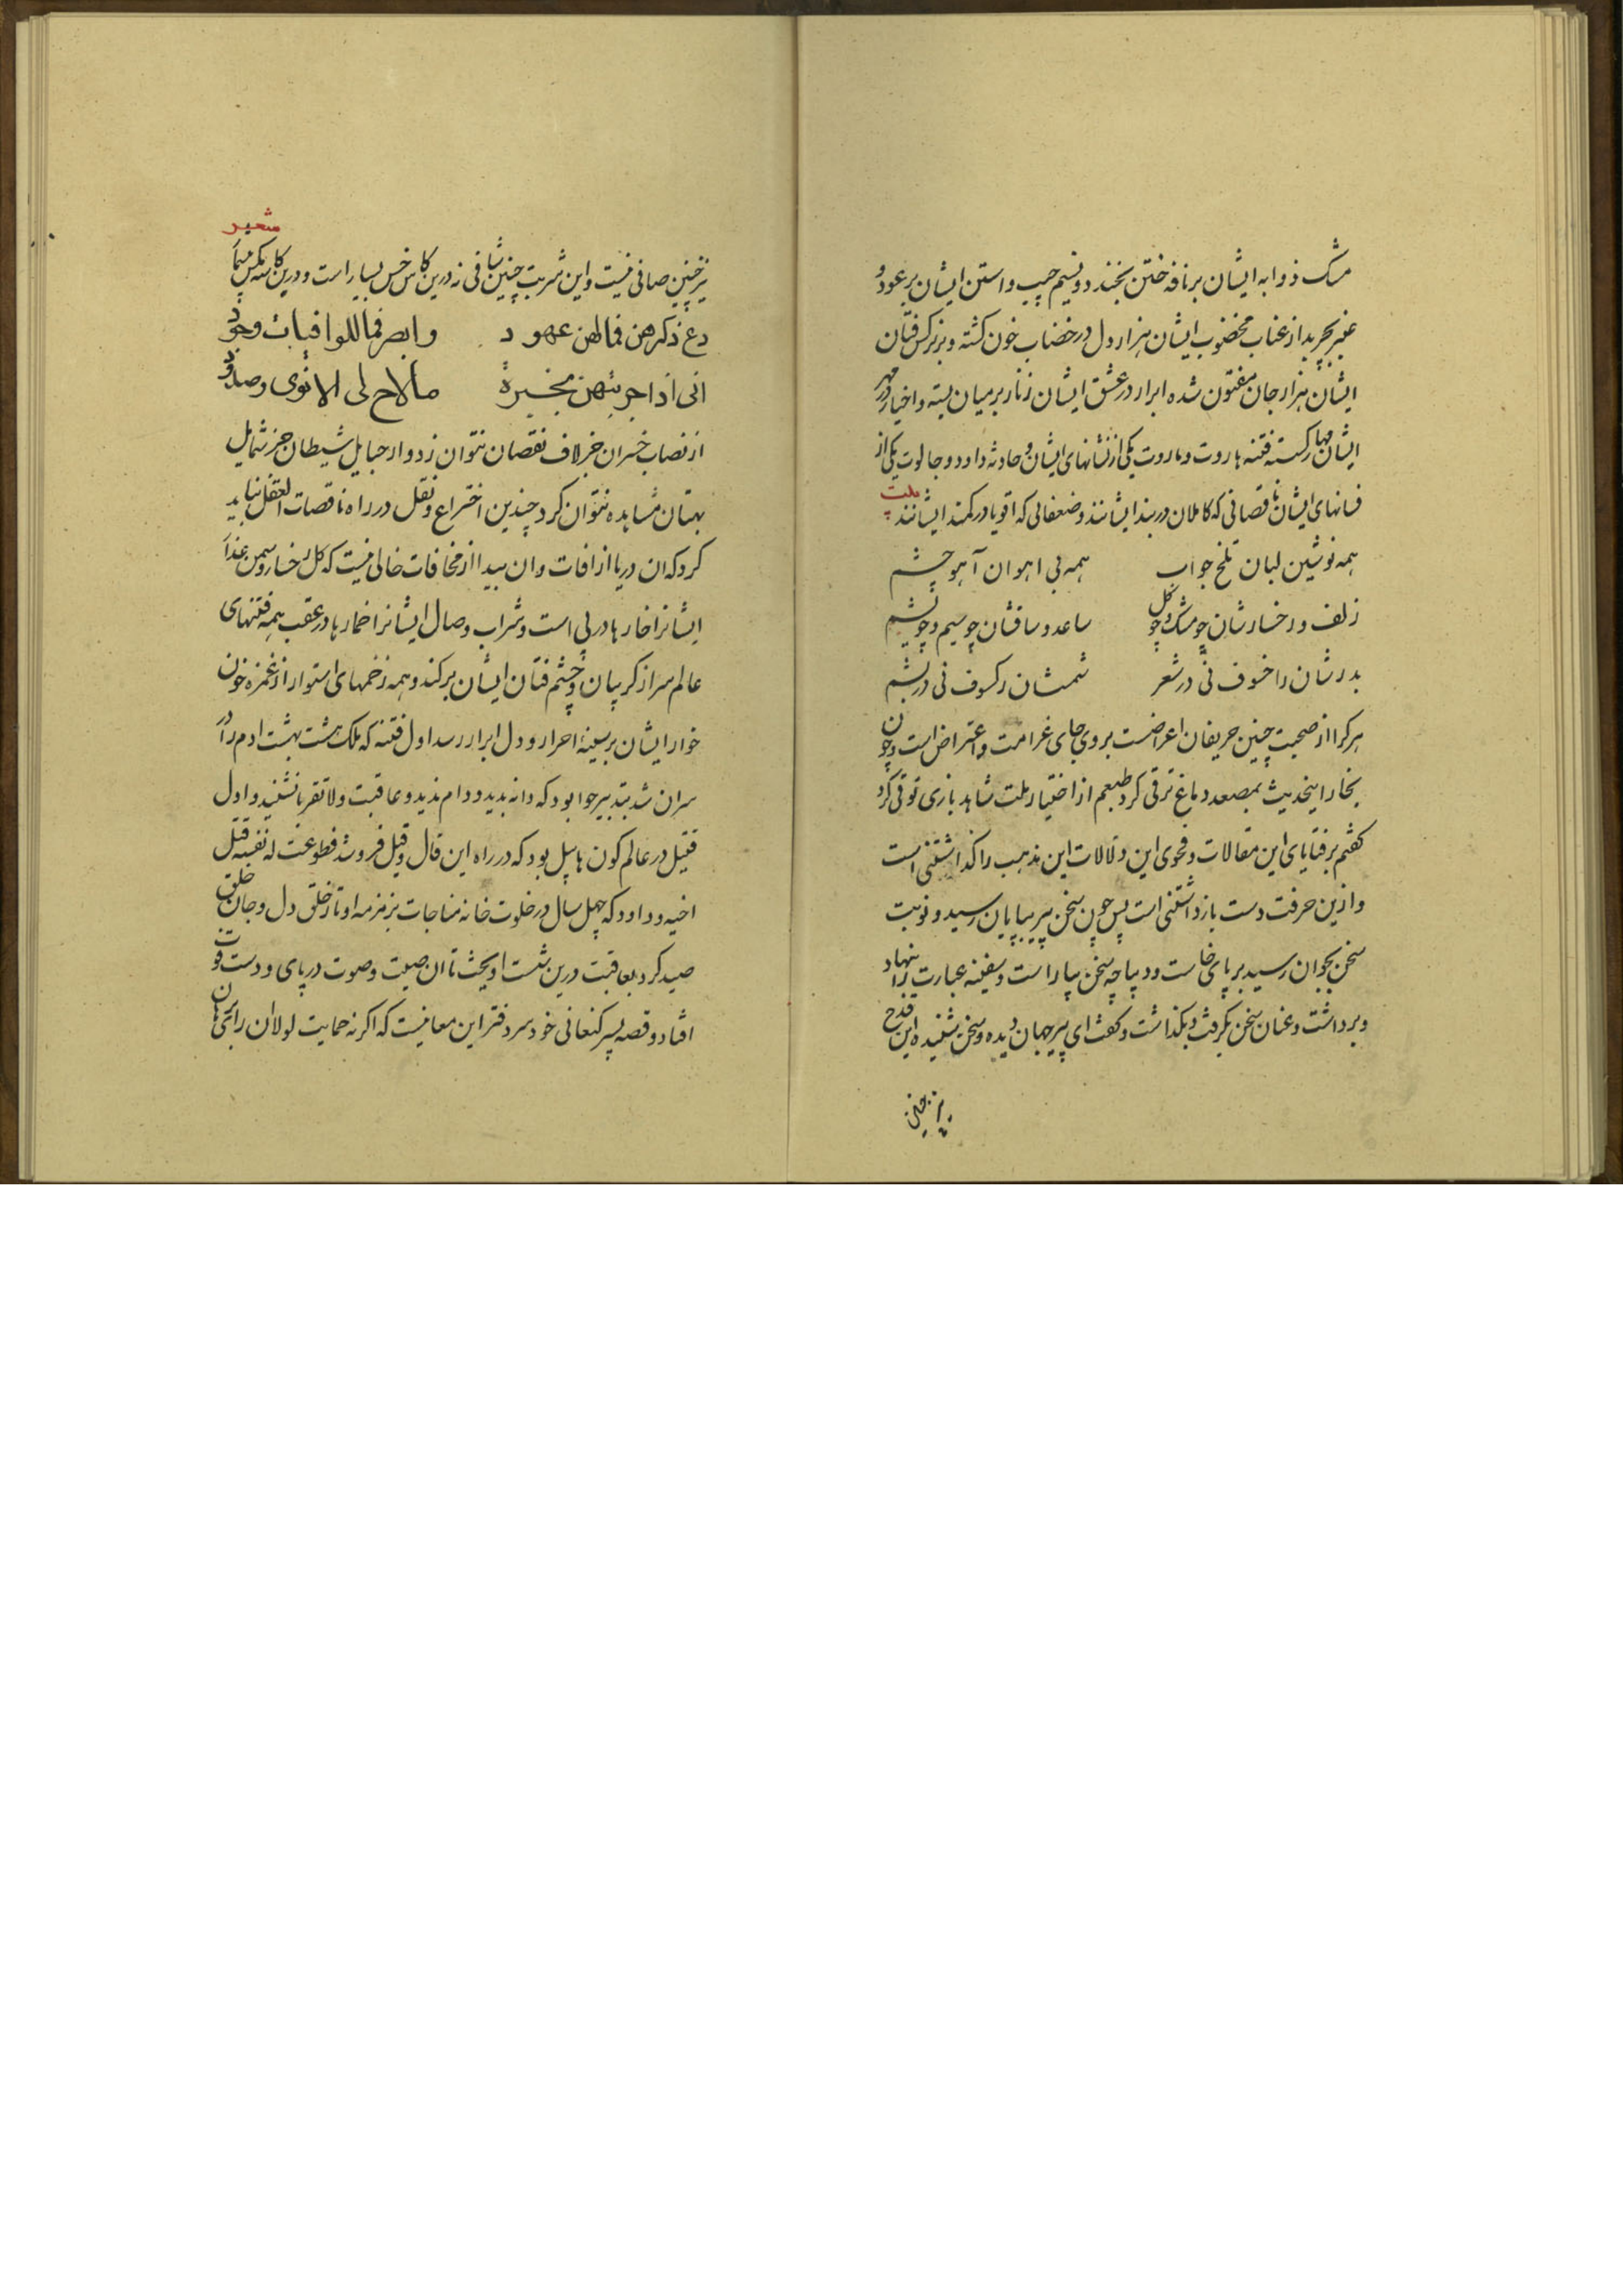 مشک ذوابه ایشان بر نافه ختن بخندد و نسیم جیب و استن ایشان بر عود و
عنبر بچربد از عناب مخضوب ایشان هزار دل در خضاب خون کشته و بر نرکس فتان
ایشان هزار جان مفتون شده ابرار در عشق ایشان زنار بر میان بسته و اخیار در مهر
ایشان مهار کسسته فتنه هاروت و ماروت یکی از نشانهای ایشان و حادثه داود و جالوت یکی از
فسانهای ایشان ناقصانی که کاملان در بند ایشانند و ضعفائی که اقویا در کمند ایشانند بیت
همه نوشین لبان تلخ جواب همه بی اهوان آهو چشم
زلف و رخسارشان چو مشک و چو کل ساعد و ساقشان چو سیم و چو پشم
بدرشان را خسوف نی در شعر شمسشان را کسوف نی در پشم
هرکرا از صحبت چنین حریفان اعراضست بر وی جای غرامت و اعتراض است و چون
بخار اینحدیث بمصعد دماغ ترقی کرد طبعم از اختیار ملت شاهد بازی توقی کرد
کفتم بر فتایای این مقالات و فحوی این دلالات این مذهب را کذاشتنی است
و ازین حرفت دست بازداشتنی است پس چون سخن پیر بپایان رسید و نوبت
سخن بجوان رسید بر پای خاست و دیباچه سخن بیاراست و سفینه عبارت را بنهاد
و برداشت و عنان سخن بکرفت و بکذاشت و کفت ای پیر جهان دیده و سخن شنیده این قدح
نیز چنین
شعر
نیز چنین صافی نیست و این شربت چنین شافی نه درین کاس خس بسیار است و درین کاسه مکس بیشمار
دع ذکرهن فما لهن عهود وابصر فما للوافیات وجود
انی اذا جربتهن مخبرة مالاح لی الا نوی وصدود
از نصاب خسران جز لاف نقصان نتوان زد و از حبایل شیطان جز شمایل
بهتان مشاهده نتوان کرد چندین اختراع و نقل در راه ناقصات العقل نباید
کرد که ان دریا از افات و ان بیدا از مخافات خالی نیست که کل رخسار و سمن عذار
ایشانرا خارها در پی است و شراب وصال ایشانرا خمارها در عقب همه فتنهای
عالم سر از کریبان و چشم فتان ایشان برکند و همه زخمهای استوار از غمزه خون
خوار ایشان بر سینه احرار و دل ابرار رسد اول فتنه که ملک هشت بهشت ادم را در
سر ان شد بتدبیر حوا بود که دانه بدید و دام ندید و عاقبت ولا تقربا نشنید و اول
قتیل در عالم کون هابیل بود که در راه این قال و قیل فرو شد فطوعت له نفسه قتل
اخیه و داود که چهل سال در خلوت خانه مناجات بزمزمه اوتار خلق دل و جان خلق
صید کرد بعاقبت درین شست اویخت تا ان صیت و صوت در پای و دست فوت
افتاد و قصه پسر کنعانی خود سر دفتر این معانیست که اکر نه حمایت لولا ان رای برهان